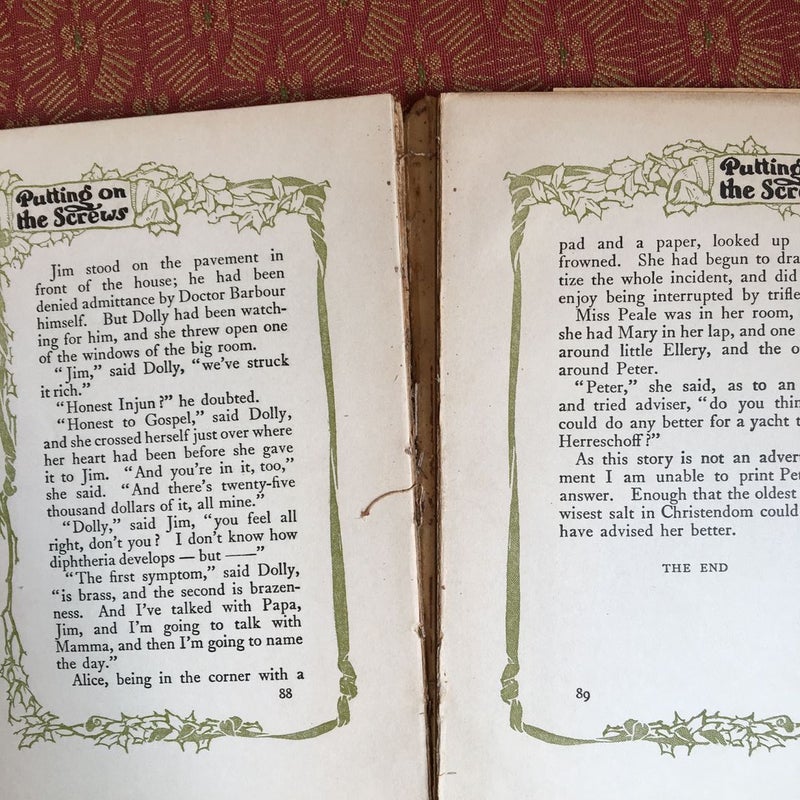 Putting on
the Screws
Jim stood on the pavement in
front of the house; he had been
denied admittance by Doctor Barbour
himself. But Dolly had been watch-
ing for him, and she threw open one
of the windows of the big room.
"Jim," said Dolly, "we've struck
it rich."
"Honest Injun?" he doubted.
"Honest to Gospel," said Dolly,
and she crossed herself just over where
her heart had been before she gave
it to Jim. "And you're in it, too,"
she said. "And there's twenty-five
thousand dollars of it, all mine."
"Dolly," said Jim, "you feel all
right, don't you? I don't know how
diphtheria develops — but ——"
"The first symptom," said Dolly,
"is brass, and the second is brazen-
ness. And I've talked with Papa,
Jim, and I'm going to talk with
Mamma, and then I'm going to name
the day."
Alice, being in the corner with a
88
Putting
the
pad and a paper, looked up
frowned. She had begun to
tize the whole incident, and did
enjoy being interrupted by
Miss Peale was in her room,
she had Mary in her lap, and one
around little Ellery, and the
around Peter.
"Peter," she said, as to an
and tried adviser, "do you
could do any better for a yacht
Herreschoff?"
As this story is not an
ment I am unable to print
answer. Enough that the oldest
wisest salt in Christendom could
have advised her better.
THE END
89